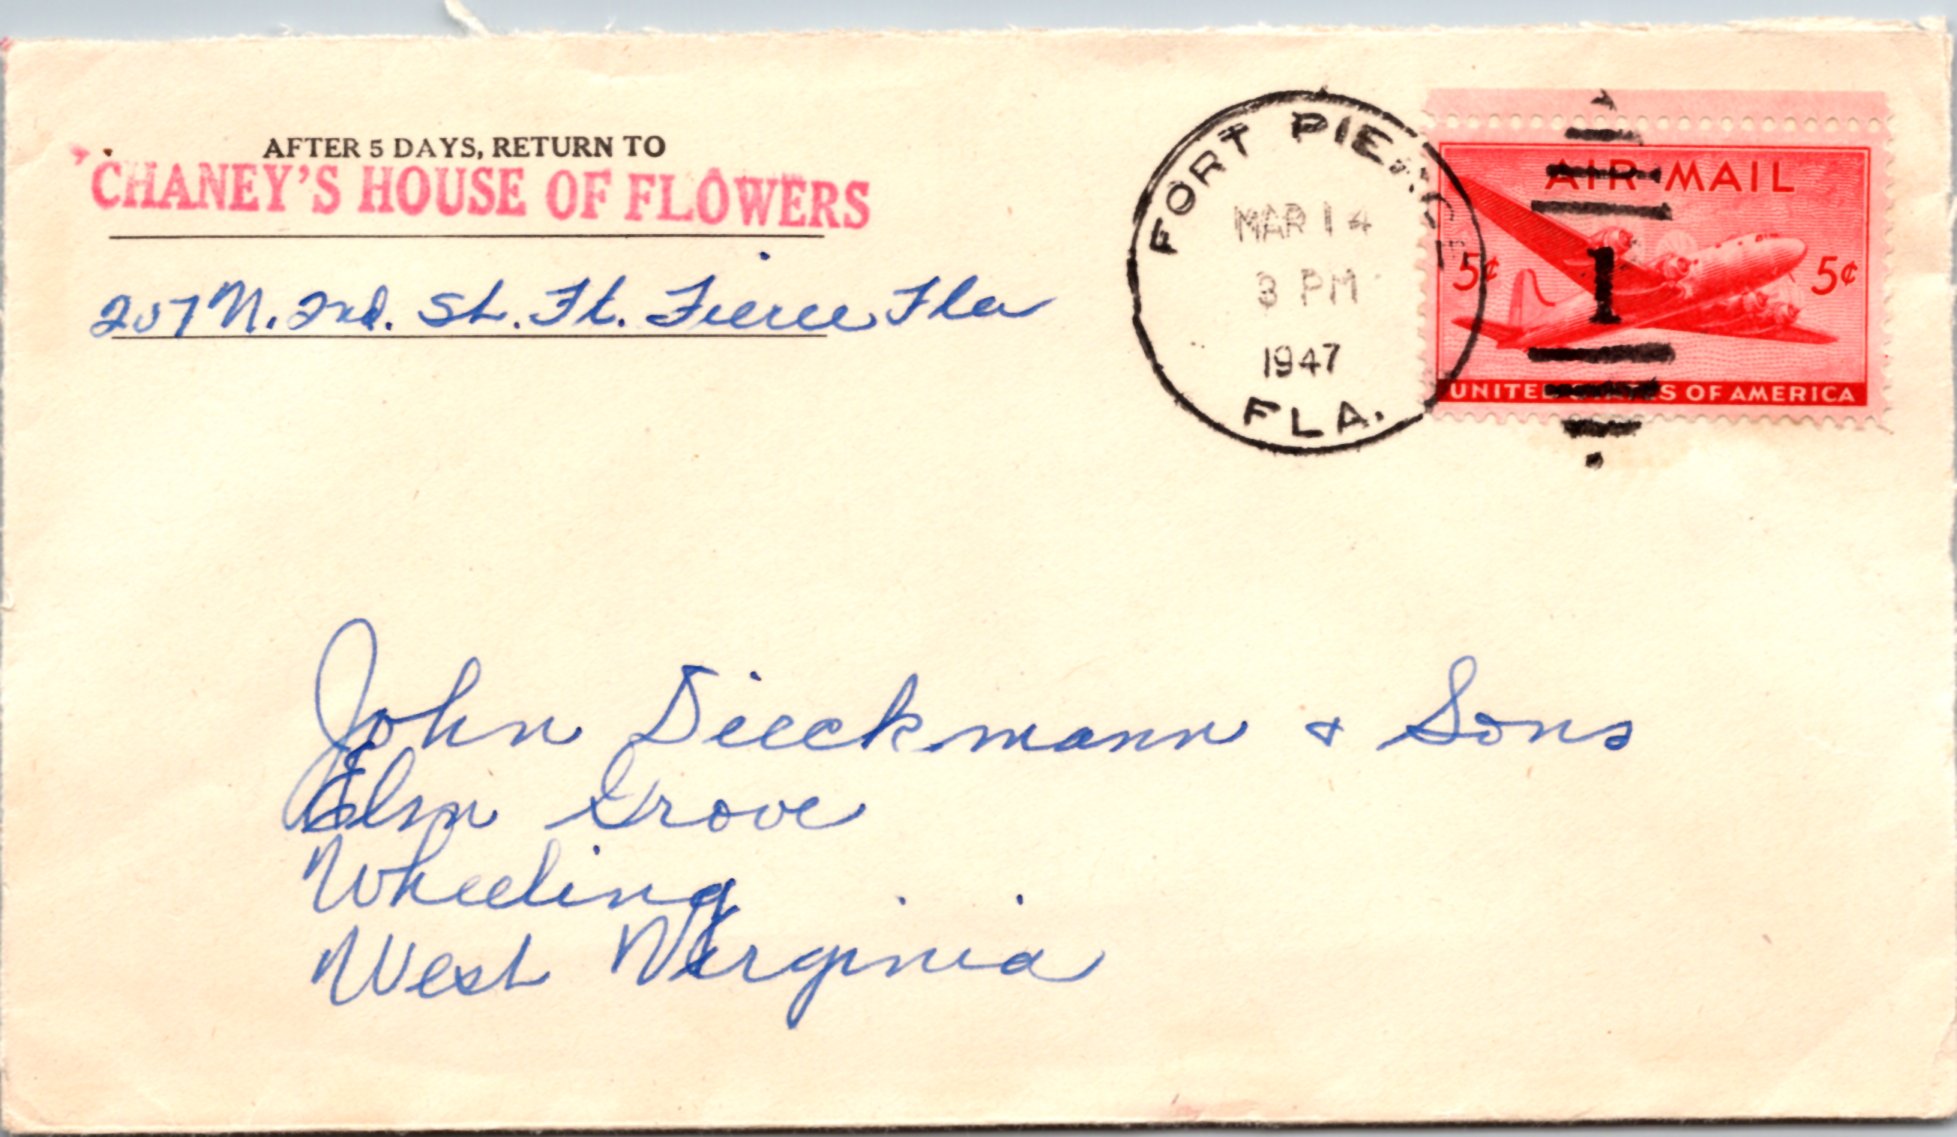 AFTER 5 DAYS, RETURN TO
CHANEY'S HOUSE OF FLOWERS
207 N. 2nd. St. Ft. Pierce, Fla
FORT PIERCE
MAR 14
3 PM
1947
FLA.
1
AIR MAIL
5¢ 5¢
UNITED STATES OF AMERICA
John Dieckmann & Sons
Elm Grove
Wheeling
West Virginia